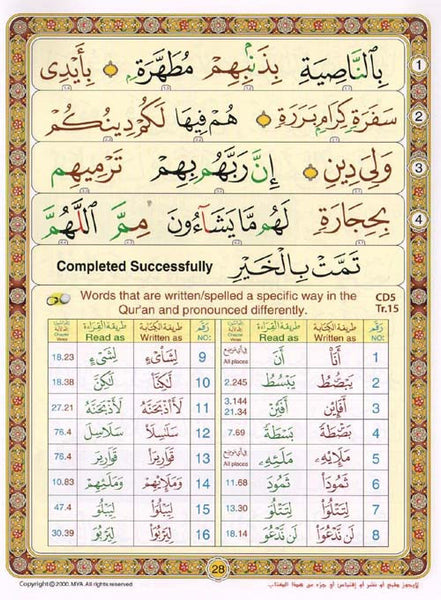 بِالنَّاصِيَةِ بِذَنبِهِمْ مُطَهَّرَةٍ بِأَيْدِى 1
سَفَرَةٍ كِرَامٍ بَرَرَةٍ هُمْ فِيهَا لَكُمْ دِينُكُمْ 2
وَلِىَ دِينِ إِنَّ رَبَّهُم بِهِمْ تَرْمِيهِم 3
بِحِجَارَةٍ لَهُم مَّا يَشَآءُونَ مِمَّ اللَّهُمَّ 4
Completed Successfully تَمَّتْ بِالْخَيْرِ
Words that are written/spelled a specific way in the CD5
Qur'an and pronounced differently. Tr.15
رقم طريقة الكتابة طريقة القراءة رقم طريقة الكتابة طريقة القراءة
NO: Written as Read as Chapter Verse NO: Written as Read as Chapter Verse
1 أَنَا۠ أَنَ All places 9 لِشَا۟ىْءٍ لِشَىْءٍ 18.23
2 يَبْصُۜطُ يَبْسُطُ 2.245 10 لَٰكِنَّا۠ لَٰكِنَّ 18.38
3 أَفَإِي۟ن أَفَئِن 3.144 21.34 11 لَأَاذْبَحَنَّهُ لَأَذْبَحَنَّهُ 27.21
4 بَصْۜطَةً بَسْطَةً 7.69 12 سَلَٰسِلَا۟ سَلَاسِلَ 76.4
5 مَلَإِي۟هِ مَلَئِهِ All places 13 قَوَارِيرَا۟ قَوَارِيرَ 76.4
6 ثَمُودَا۟ ثَمُودَ 11.68 14 وَمَلَإِي۟هِمْ وَمَلَئِهِمْ 10.83
7 لِتَتْلُوَا۟ لِتَتْلُوَ 13.30 15 لِيَبْلُوَا۟ لِيَبْلُوَ 47.4
8 لَن نَّدْعُوَا۟ لَن نَّدْعُوَ 18.14 16 لِيَرْبُوَا۟ لِيَرْبُوَ 30.39
28
Copyright © 2000. MYA. All rights reserved لايجوز طبع أو نشر أو إقتباس أو جزء من هذا الكتاب